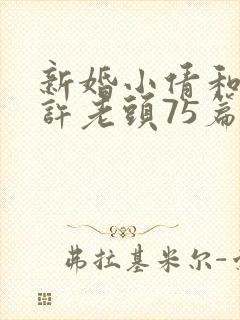 新婚小倩和
許老頭75篇
弗拉基米尔-